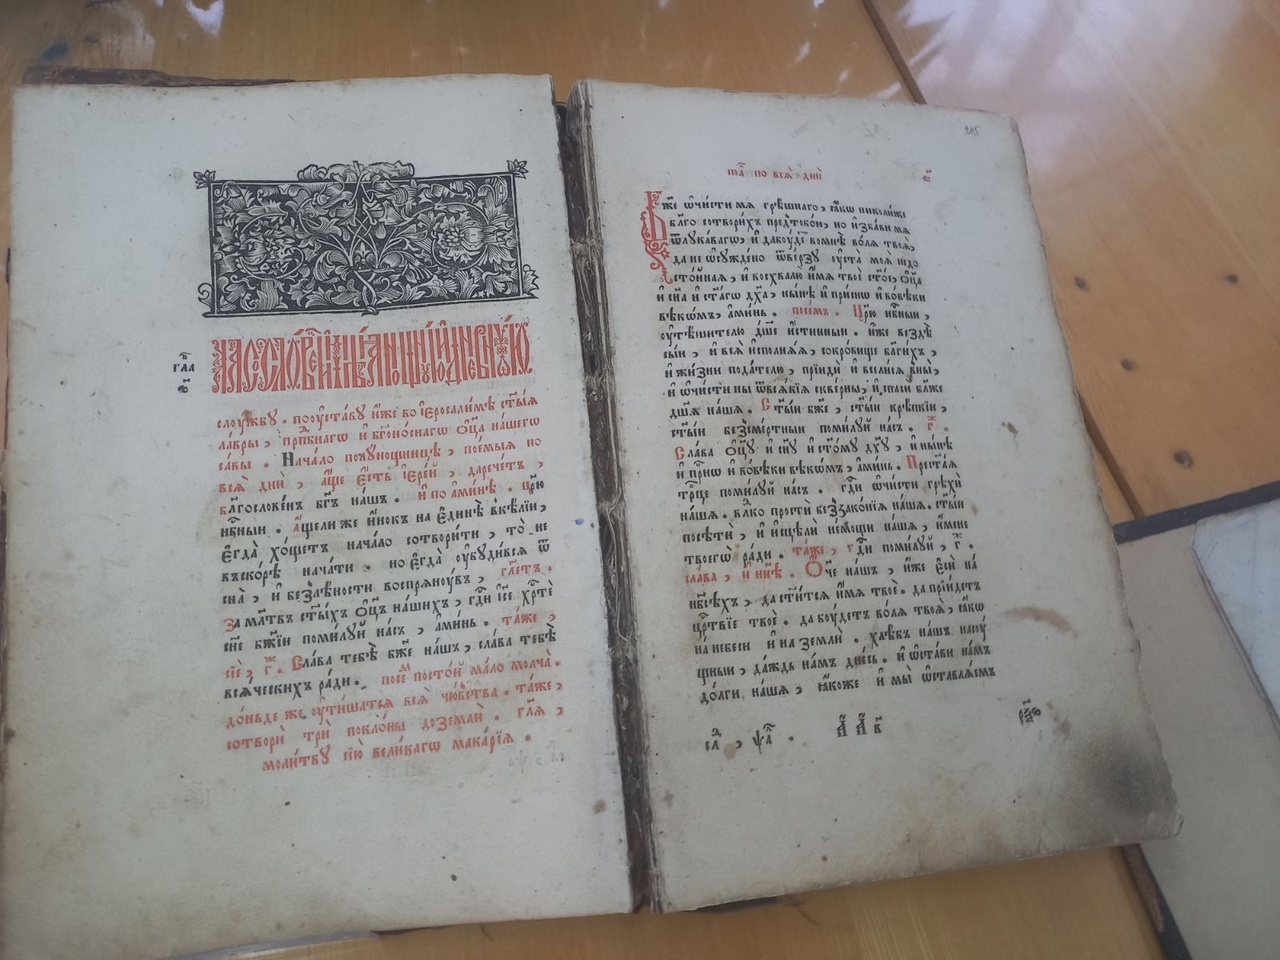 гла҃
в҃і
ЧАСОСЛОВЕЦ ИМѢѦИ НОЩНУЮ И ДНЕВНУЮ
слоужбу . поуставу и҆́же во і҆еросали́мѣ ст҃ыѧ
ла́вры , прпⷣбнагѡ и҆ бг҃оно́снагѡ ѻ҆ц҃а̀ на́шегѡ
са́вы . Нача́ло полꙋ́нощницѣ , пое́мыѧ по
всѧ̀ дни̑ , а҆́ще є҆́сть і҆ере́й , да рече́тъ ,
блⷭ҇ве́нъ бг҃ъ на́шъ . и҆ по а҆ми́нѣ . црю̀
нбⷭ҇ныи . а҆́щели же и҆́нокъ на є҆ди́нѣ вкѣлїи ,
є҆гда̀ хо́щетъ нача́ло сотвори́ти , то̀ не
въско́рѣ нача́ти . но є҆гда̀ оу҆бꙋди́всѧ ѿ
сна̀ , и҆ без̾лѣ́ности воспрѧ́нꙋвъ , гл҃етъ .
За мл҃твъ ст҃ы́хъ ѻ҆ц҃ъ на́шихъ , гдⷭ҇и і҆с҃е хрⷭ҇тѐ
сн҃е бж҃їи поми́лꙋй на́съ , а҆ми́нь . та́же ,
сїѐ , г҃ . Сла́ва тебѣ̀ бж҃е на́шъ , сла́ва тебѣ̀
всѧ́ческихъ ра́ди . посе́мъ посто́й ма́ло молча̀ .
до́ньде же оу҆ти́шатсѧ всѧ̀ чю́вства . та́же ,
сотвори̑ три̑ покло́ны до землѝ . гл҃ѧ ,
моли́твꙋ сїю̀ вели́кагѡ мака́рїѧ .
по всѧ̀ дни̑
є҃
Бж҃е ѡ҆чи́сти мѧ грѣ́шнаго , ꙗ҆́кѡ николи́же
бл҃го сотвори́хъ предтобо́ю , но и҆зба́ви мѧ
ѿлꙋка́вагѡ , и҆ дабꙋ́детъ во мнѣ̀ во́лѧ твоѧ̀ ,
да не ѡ҆сꙋжде́но ѿве́рзꙋ оу҆ста̀ моѧ̀ недо
сто́йнаѧ , и҆ восхвалю̀ и҆́мѧ твоѐ ст҃о́е , ѻ҆ц҃а̀
и҆ сн҃а и҆ ст҃а́гѡ дх҃а , ны́нѣ и҆ при́снѡ и҆ во́вѣки
вѣкѡ́мъ , а҆ми́нь . посе́мъ . Црю̀ нбⷭ҇ныи ,
оу҆тѣ́шителю дш҃е и҆́стинныи . и҆́же вездѣ̀
сы́и , и҆ всѧ̀ и҆сполнѧ́ѧ , сокро́вище бл҃ги́хъ ,
и҆ жи́зни пода́телю , прїидѝ и҆ всели́сѧ вны̀ ,
и҆ ѡ҆чи́сти ны ѿвсѧ́кїѧ скве́рны , и҆ спаси̑ бл҃же
дш҃а на́ша . Ст҃ы́и бж҃е , ст҃ы́и крѣ́пкїи ,
ст҃ы́и безсме́ртныи поми́лꙋй на́съ . г҃ .
Сла́ва ѻ҆ц҃ꙋ и҆ сн҃ꙋ и҆ ст҃о́мꙋ дх҃ꙋ , и҆ ны́нѣ
и҆ при́снѡ и҆ во́вѣки вѣкѡ́мъ , а҆ми́нь . Прест҃а́ѧ
трⷪ҇це поми́лꙋй на́съ . гдⷭ҇и ѡ҆чи́сти грѣхѝ
на́шѧ . влⷣко простѝ беззако́нїѧ на́шѧ . ст҃ы́и
посѣтѝ , и҆ и҆сцѣлѝ не́мощи на́шѧ , и҆́мене
твоегѡ̀ ра́ди . та́же , гдⷭ҇и поми́лꙋй , г҃ .
сла́ва , и҆ ны́нѣ . Ѻ҆́ч҃е на́шъ , и҆́же є҆сѝ на
нбⷭ҇сѣ́хъ , да ст҃и́тсѧ и҆́мѧ твоѐ . да прїи́детъ
црⷭ҇твїе твоѐ . да бꙋ́детъ во́лѧ твоѧ̀ , ꙗ҆́кѡ
на небесѝ и҆ на землѝ . хлѣ́бъ на́шъ насꙋ́
щныи , да́ждь на́мъ дне́сь . и҆ ѡ҆ста́ви на́мъ
до́лги на́шѧ , ꙗ҆́коже и҆ мы̀ ѡ҆ставлѧ́емъ